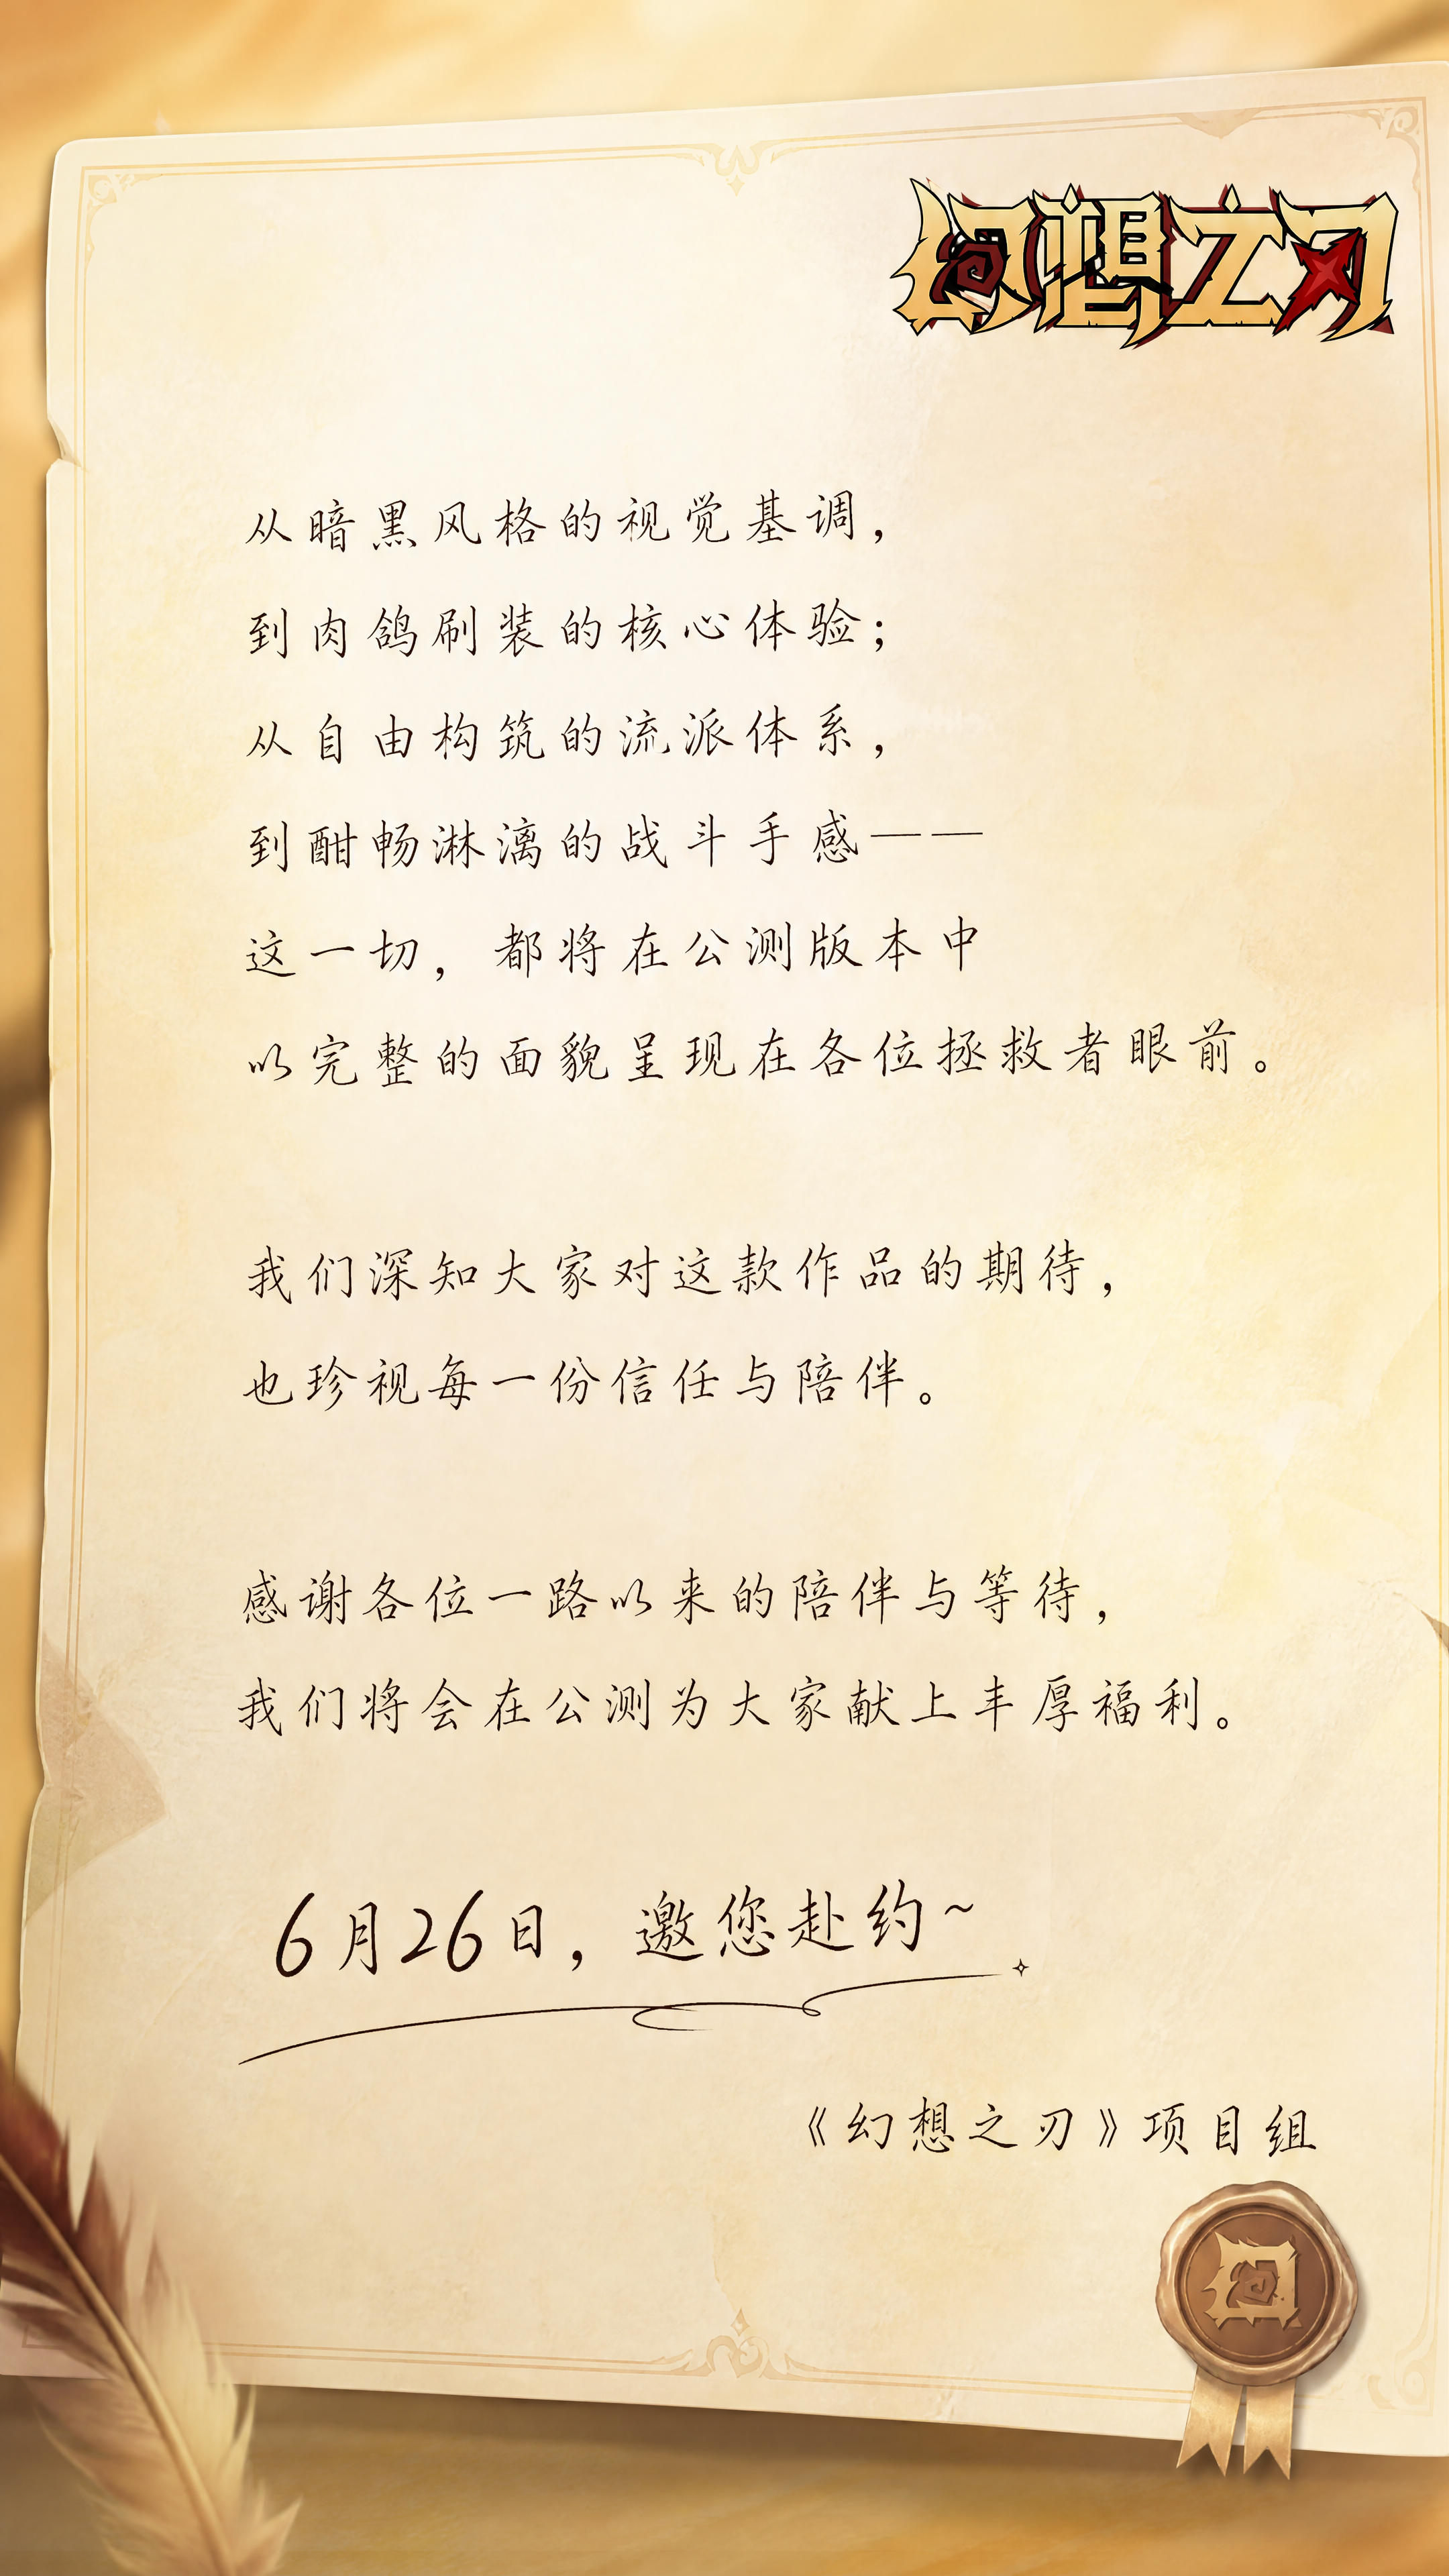 幻想之刃
从暗黑风格的视觉基调，
到肉鸽刷装的核心体验；
从自由构筑的流派体系，
到酣畅淋漓的战斗手感——
这一切，都将在公测版本中
以完整的面貌呈现在各位拯救者眼前。
我们深知大家对这款作品的期待，
也珍视每一份信任与陪伴。
感谢各位一路以来的陪伴与等待，
我们将会在公测为大家献上丰厚福利。
6月26日，邀您赴约~
《幻想之刃》项目组
幻